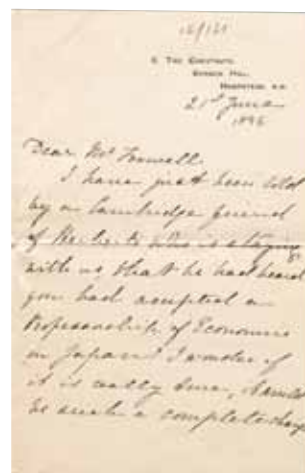 5 The Chestnuts,
Branch Hill,
Hampstead. N.W.
21st June
1896
Dear Mr Foxwell
I have just been told
by a Cambridge friend
of who is staying
with us that he had heard
you had accepted a
Professorship of Economics
in Japan. I wonder if
it is really true,
be such a complete change